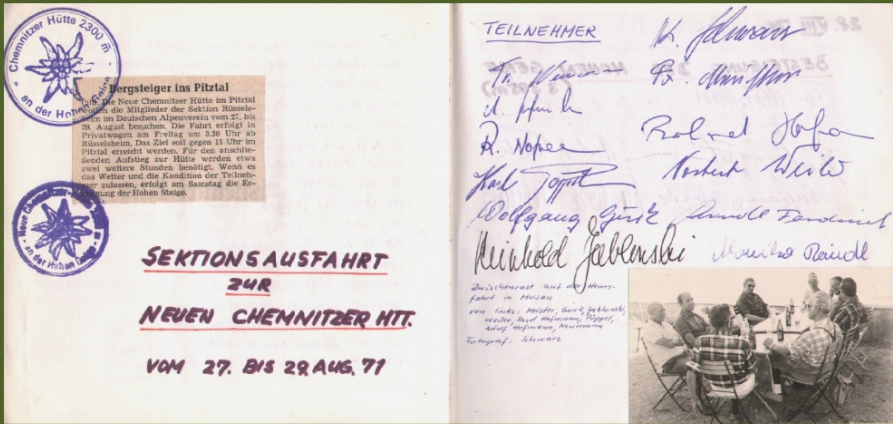 Chemnitzer Hütte 2300 m
- an der Hohen Geige -
Bergsteiger ins Pitztal
Die Neue Chemnitzer Hütte im Pitztal
wollen die Mitglieder der Sektion Rüssels-
heim im Deutschen Alpenverein vom 27. bis
29. August besuchen. Die Fahrt erfolgt in
Privatwagen am Freitag um 3.30 Uhr ab
Rüsselsheim. Das Ziel soll gegen 11 Uhr im
Pitztal erreicht werden. Für den anschlie-
ßenden Aufstieg zur Hütte werden etwa
zwei weitere Stunden benötigt. Wenn es
das Wetter und die Kondition der Teilneh-
mer zulassen, erfolgt am Samstag die Er-
steigung der Hohen Steige.
Neue Chemnitzer
- an der Hohen Geige -
SEKTIONSAUSFAHRT
ZUR
NEUEN CHEMNITZER HTT.
VOM 27. BIS 29. AUG. 71
TEILNEHMER
K. Schwarz
Roland Hofm
Karl Töppel
Norbert Weiler
Wolfgang Gurk
Reinhold Jablonski
Monika Raindl
Zwischenrast auf der Heim-
fahrt in Musau
von links: Meister, Gurk, Jablonski,
Weiler, Hofmann, Töppel,
Adolf Hofmann, Neumann
Fotograf: Schwarz